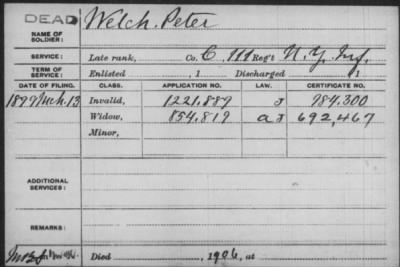 DEAD
NAME OF SOLDIER:
Welch, Peter
SERVICE:
Late rank, Co. C, 111 Reg't N. Y. Inf.
TERM OF SERVICE:
Enlisted , 1 Discharged , 1
DATE OF FILING. CLASS. APPLICATION NO. LAW. CERTIFICATE NO.
Mch. 13 Invalid, 1221,887 J 984,300
Widow, 854,819 692,467
Minor,
ADDITIONAL SERVICES:
REMARKS:
Died , 1906, at